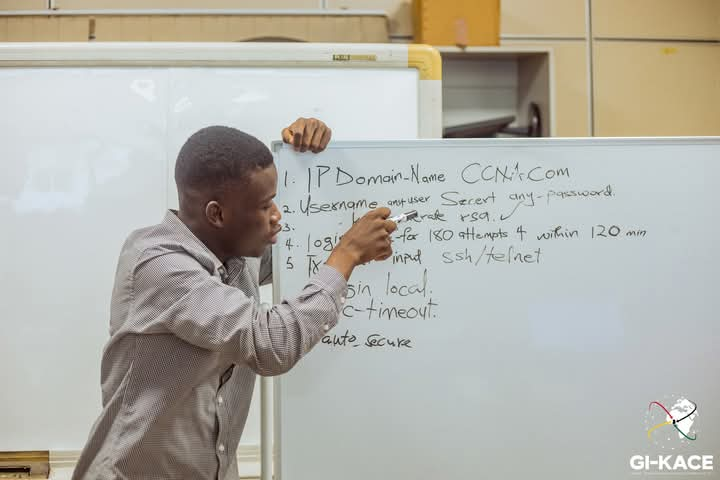 1. IP Domain-Name CCNA.Com
2. Username any user Secert any-password.
3. rsa.
4. login -for 180 attempts 4 within 120 min
5 input ssh/telnet
local.
-timeout.
auto_secure
GI-KACE